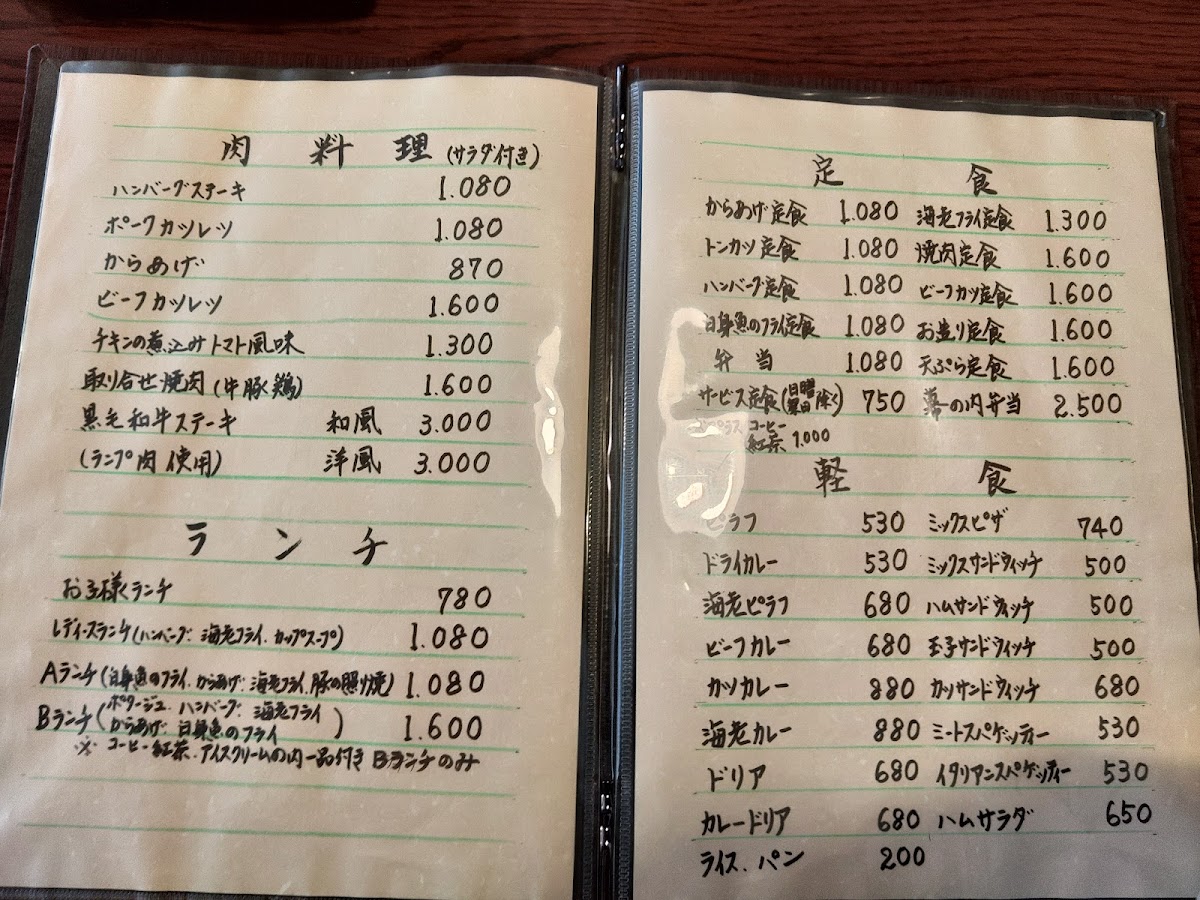 肉料理(サラダ付き)
ハンバーグステーキ 1.080
ポークカツレツ 1.080
からあげ 870
ビーフカツレツ 1.600
チキンの煮込みトマト風味 1.300
取り合せ焼肉(牛豚鶏) 1.600
黒毛和牛ステーキ 和風 3.000
(ランプ肉使用) 洋風 3.000
ランチ
お子様ランチ 780
レディースランチ(ハンバーグ.海老フライ.カップスープ) 1.080
Aランチ(白身魚のフライ.からあげ.海老フライ.豚の照り焼) 1.080
Bランチ(ポタージュ.ハンバーグ.海老フライ
からあげ.白身魚のフライ) 1.600
※コーヒー.紅茶.アイスクリームの内一品付き Bランチのみ
定食
からあげ定食 1.080 海老フライ定食 1.300
トンカツ定食 1.080 焼肉定食 1.600
ハンバーグ定食 1.080 ビーフカツ定食 1.600
白身魚のフライ定食 1.080 お造り定食 1.600
弁当 1.080 天ぷら定食 1.600
サービス定食(日曜祭日除く) 750 幕の内弁当 2.500
プラス コーヒー
紅茶 1.000
軽食
ピラフ 530 ミックスピザ 740
ドライカレー 530 ミックスサンドウィッチ 500
海老ピラフ 680 ハムサンドウィッチ 500
ビーフカレー 680 玉子サンドウィッチ 500
カツカレー 880 カツサンドウィッチ 680
海老カレー 880 ミートスパゲッティー 530
ドリア 680 イタリアンスパゲッティー 530
カレードリア 680 ハムサラダ 650
ライス.パン 200